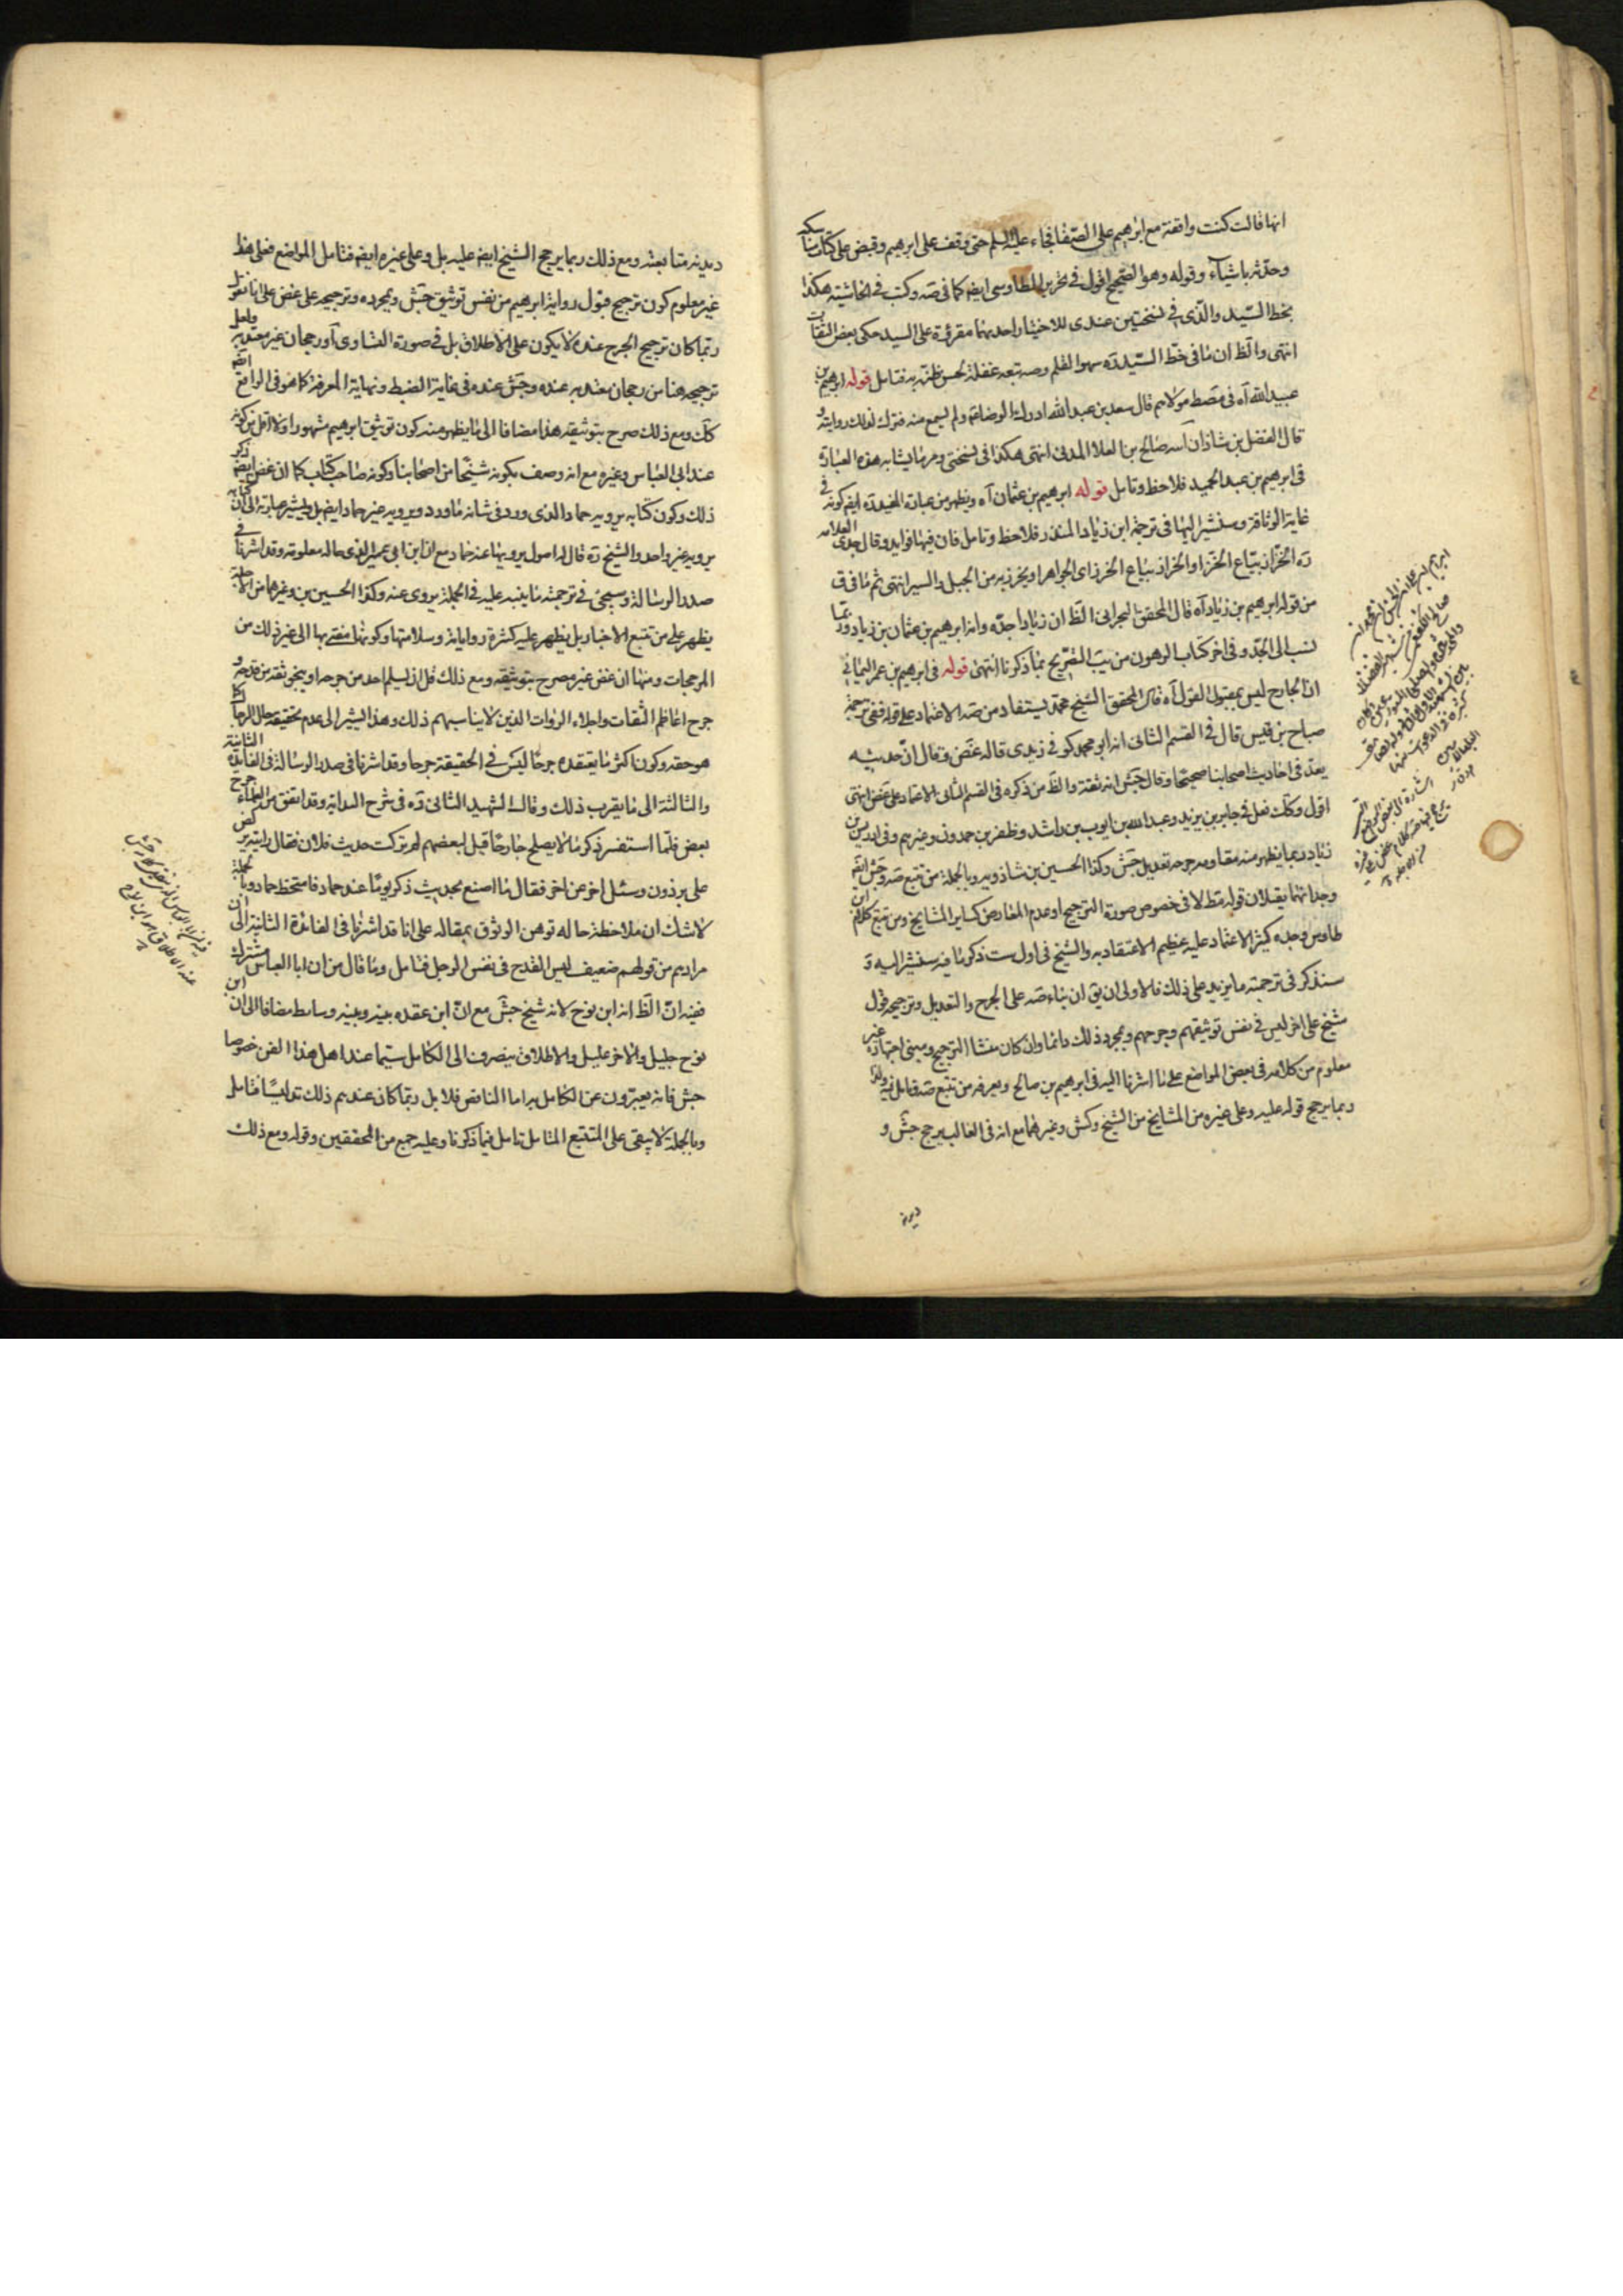 انها قالت كنت واقفة مع ابرهيم على الصفا فجاء عليه السلم حتى وقف على ابرهيم وقبض على كتابنا
وحدثه باشياء وقوله وهو الصحيح اقول في تحرير الطاوسى ايضا كما فى صه وكتب في الحاشية هكذا
بخط السيد والذى في نسختين عندى للاختيار احديهما مقروءة على السيد حكى بعض الثقات
انتهى والظ ان ما فى خط السيد ره سهو القلم وصه تبعه غفلة لحسن ظنه به فتامل قوله ابرهيم بن
عبيد الله آه فى مصط مولاهم قال سعد بن عبد الله ادرك الرضا عم ولم يسمع منه فترك لذلك روايته و
قال الفضل بن شاذان انه صالح بن العلا المدنى انتهى هكذا فى نسختى ومر ما يشابه هذه العبارة
فى ابرهيم بن عبد الحميد فلاحظ وتامل قوله ابرهيم بن عثمان آه ويظهر من عبارة المفيد ره ايضا كونه في
غاية الوثاقة وسنشير اليها فى ترجمة ابن زياد المنذر فلاحظ وتامل فان فيها فوايد وقال جدى العلامه
ره الخزاز بياع الخز او الخراز بياع الخرز اى الجواهر او يخرز به من الحبل والسير انتهى ثم ما فى ق
من قوله ابرهيم بن زياد آه قال المحقق البحرانى الظ ان زيادا جده وانه ابرهيم بن عثمان بن زياد وربما
نسب الى الجد وفى اخر كتاب الرهون من يب التصريح بما ذكرنا انتهى قوله فى ابرهيم بن عمر اليمانى
ان الجارح ليس بمقبول القول آه قال المحقق الشيخ محمد يستفاد من صه الاعتماد على قوله ففى ترجمة
صباح بن قيس قال فى القسم الثانى انه ابو محمد كوفى زيدى قاله غض وقال ان حديثه
يعد فى احاديث اصحابنا صحيحا وقال جش انه ثقة والظ من ذكره فى القسم الثانى الاعتماد على غض انتهى
اقول وكك فعل فى جابر بن يزيد وعبد الله بن ايوب بن راشد وظفر بن حمدون وغيرهم وفى ادريس بن
زياد ربما يظهر منه مقاومة جرحه تعديل جش وكذا الحسين بن شاذويه وبالجملة من تتبع صه وجش ايضا
وجد انهما يقبلان قوله مط لا فى خصوص صورة الترجيح او عدم المعارض كساير المشايخ ومن تتبع كلام ابن
طاوس وجده كثير الاعتماد عليه عظيم الاعتقاد به والشيخ فى اول ست ذكر ما فيه سنشير اليه و
سنذكر فى ترجمته ما يزيد على ذلك فالاولى ان يق ان بناء صه على الجرح والتعديل وترجيح قول
شيخ على اخر ليس فى نفس توثيقهم وجرحهم وبمجرد ذلك دائما وان كان منشا الترجيح ومبنى اجتهاده غير
معلوم من كلامه فى بعض المواضع على ما اشرنا اليه فى ابرهيم بن صالح ويعرفه من تتبع صه وتامل فيه ولذا
ربما يرجح قوله عليه وعلى غيره من المشايخ من الشيخ وكش وغيرهما مع انه فى الغالب يرجح جش و
ديدنه
ديدنه متابعته ومع ذلك ربما يرجح الشيخ ايضا عليه بل وعلى غيره ايضا فتامل المواضع فعلى هذا
غير معلوم كون ترجيح قبول رواية ابرهيم من نفس توثيق جش وبمجرده وترجيحه على غض على انا نقول
ربما كان ترجيح الجرح عنده لا يكون على الاطلاق بل فى صورة التساوى او رجحان غير معتد به ولعل
ترجيحه هنا من رجحان معتد به عنده وجش عنده فى غاية الضبط ونهاية المعرفة كما هو فى الواقع ايضا
كك ومع ذلك صرح بتوثيقه هذا مضافا الى ما يظهر منه كون توثيق ابرهيم مشهورا ولا اقل من كونه
عند ابى العباس وغيره مع انه وصف بكونه شيخا من اصحابنا وكونه صاحب كتاب كما ان غض ايضا ذكر
ذلك وكون كتابه يرويه حماد الذى ورد فى شانه ما ورد ويرويه غير حماد ايضا بل ويشير عبارته الى ان كتابه
يرويه غير واحد والشيخ ره قال له اصول يرويها عنه حماد مع ان ابن ابى عمير الذى حاله معلومة وقد اشرنا فى
صدر الرسالة وسيجئ فى ترجمته ما ينبه عليه فى الجملة يروى عنه وكذا الحسين بن وغيرهما من الاجلة
يظهر على من تتبع الاخبار بل يظهر عليه كثرة رواياته وسلامتها وكونها مفتى بها الى غير ذلك من
المرجحات ومنها ان غض غير مصرح بتوثيقه ومع ذلك قل ان يسلم احد من جرحه او ينجو ثقة من قدحه و
جرح اعاظم الثقات واجلاء الروات الذين لا يناسبهم ذلك وهذا يشير الى عدم تحقيقه حال الرجال كما
هو حقه وكون اكثر ما يعتقده جرحا ليس فى الحقيقة جرحا وقد اشرنا فى صدر الرسالة فى الفائدة الثانية
والثالثة الى ما يقرب ذلك وقال الشهيد الثانى ره فى شرح البداية وقد اتفق من العلماء جرح
بعض فلما استفسر ذكر ما لا يصلح جارحا قيل لبعضهم لم تركت حديث فلان فقال رايته يركض
على برذون وسئل اخر عن اخر فقال ما اصنع بحديث ذكر يوما عند حماد فامتخط حماد وبالجملة
لا شك ان ملاحظة حاله توهن الوثوق بمقاله على انا قد اشرنا فى الفائدة الثانية الى ان
مرادهم من قولهم ضعيف ليس القدح فى نفس الرجل فتامل وما قال من ان ابا العباس مشترك
ففيه ان الظ انه ابن نوح لانه شيخ جش مع ان ابن عقده بينه وبينه وسايط مضافا الى ان ابن
نوح جليل والاخر عليل والاطلاق ينصرف الى الكامل سيما عند اهل هذا الفن خصوصا
جش فانه يعبرون عن الكامل به اما الناقص فلا بل ربما كان عندهم ذلك تدليسا فتامل
وبالجملة لا يبقى على المتتبع المتامل تامل فيما ذكرنا وعليه جمع من المحققين وقوله ومع ذلك